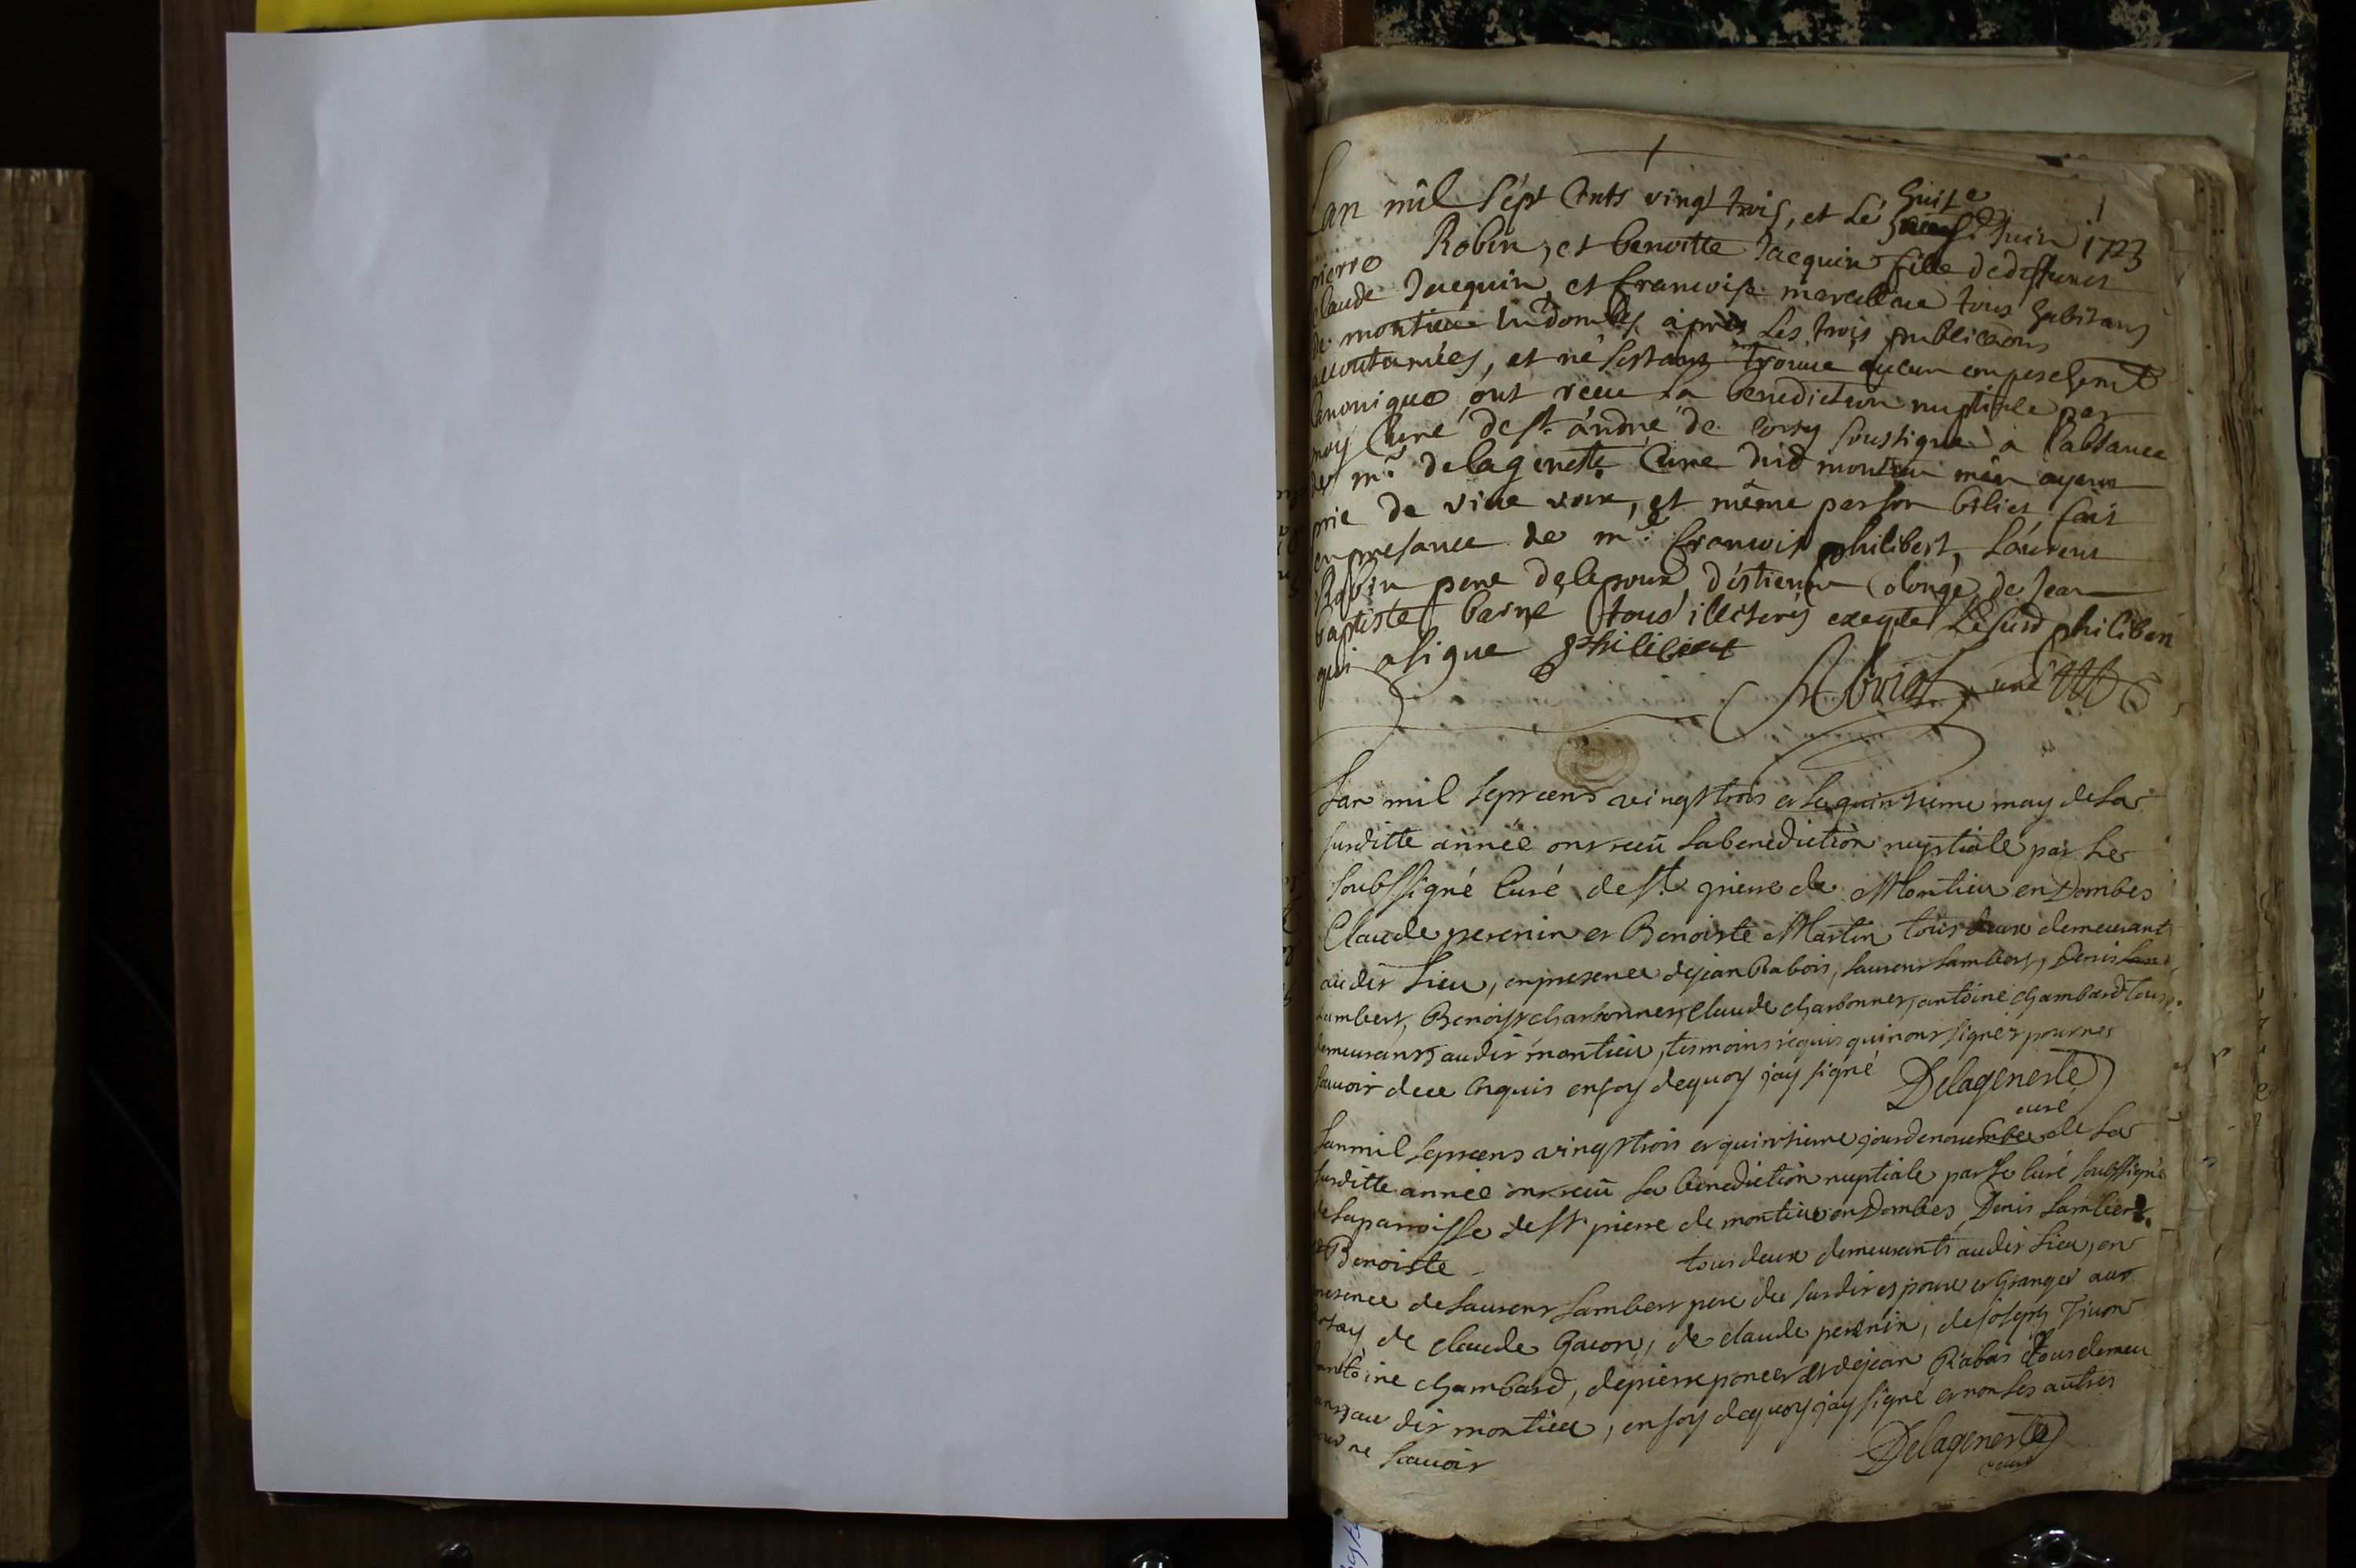 Lan mil sept Cents vingt trois, et Le huit e Juin 1723
pierre Robin, et benoitte Jacquin fille de deffunct
claude Jacquin, et francoise tous habitans
de montieu En dombes apres Les trois publicaons
accoutumées, et ne sestant trouue aucun empeschemt
Canonique ont reçu la benediction nuptiale par
moy Curé de st andré de corsy soussigné a l'absance
de mr delageneste Curé dud montieu men ayant
prie de viue voix, et même par son billiet fait
en presance de mr francois philibert, Laurent
Robin pere de lepoux, d'éstienne Colonge, de Jean
baptiste barne tous illiterés excepte Le susd philibert
qui a signe philibert
curé
Lan mil sept cens vingt trois et le quinsieme may de la
susditte année ont reçû la benediction nuptiale par le
soubssigné Curé de st pierre de Montieu en Dombes
Claude perenin et Benoiste Martin tous deux demeurant
au dit Lieu, en presence de jean Rabois, Laurens Lambert, Denis
Lambert, Benoist charbonner, Claude charbonner, antoine chambard tous
demeurans au dit montieu, tesmoins requis qui n'ont signés pour ne
scauoir de ce Enquis en foy de quoy j'ay signé Delageneste
curé
Lan mil sept cens vingt trois et quinsieme jour de nouembre de la
susditte année ont reçû la benediction nuptiale par le Curé soubssigné
de la parroisse de st pierre de montieu en Dombes Denis Lambert
et Benoiste tous deux demeurants au dit Lieu, en
presence de Laurens Lambert pere du susdit espoux et granger au
de claude Gacon, de claude perenin, de joseph
d'antoine chambard, de pierre poncet et de jean Rabois tous demeu
rans au dit montieu, en foy de quoy j'ay signé et non les autres
pour ne scauoir Delageneste
curé